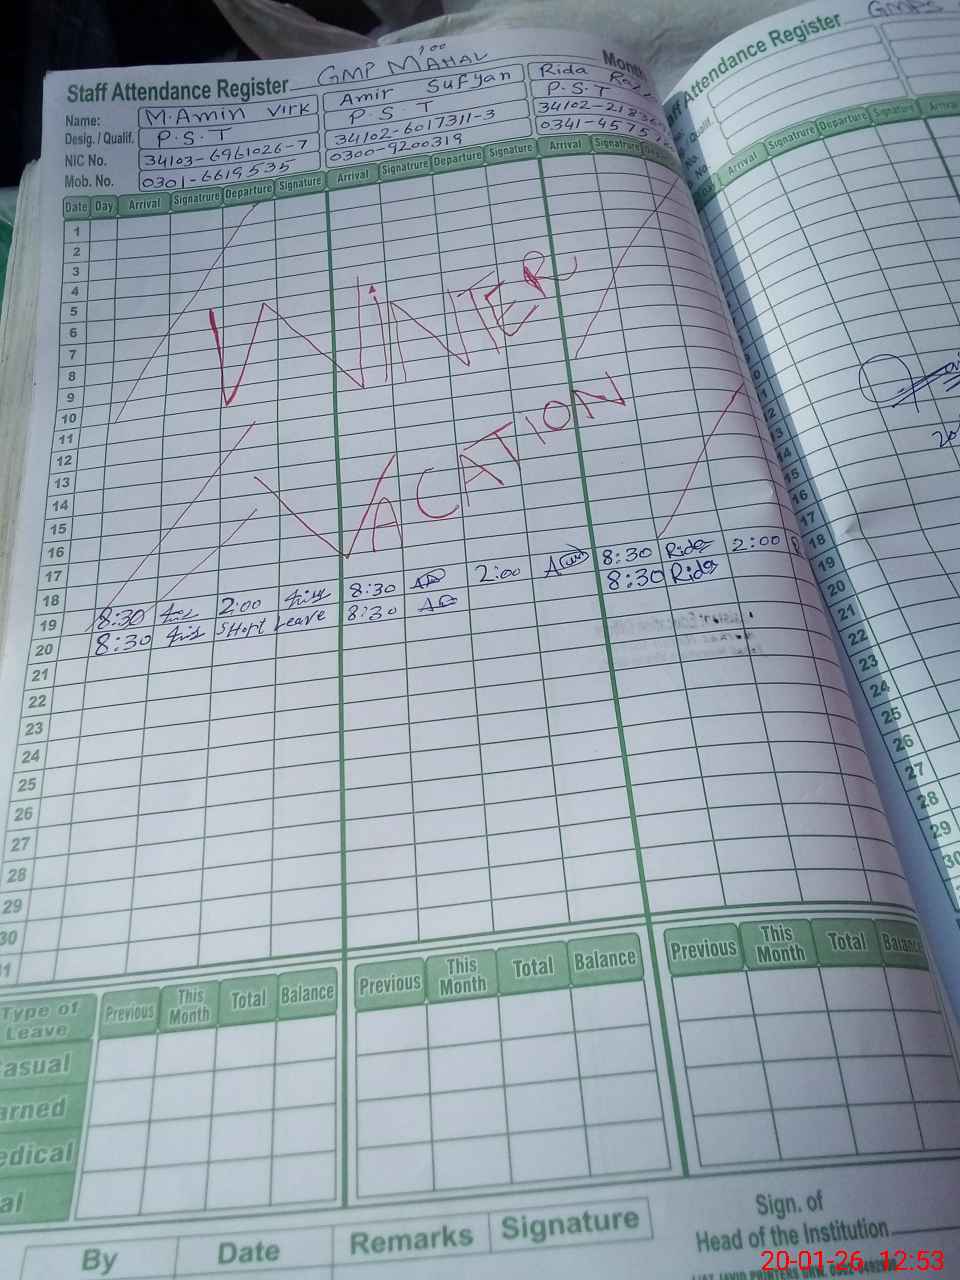 Staff Attendance Register GMP MAHAL Month
Name: M.Amin Virk Amir Sufyan Rida
Desig. / Qualif. P.S.T P.S.T P.S.T
NIC No. 34103-6961026-7 34102-6017311-3 34102-2183
Mob. No. 0301-6619535 0300-9200319 0341-4575
Date Day Arrival Signatrure Departure Signature Arrival Signatrure Departure Signature Arrival Signatrure
1
2
3
4
5
6
7
8
9
10
11
12
13
14
15
16
17
18
19 8:30 2:00 8:30 2:00 8:30 Rida 2:00
20 8:30 Short Leave 8:30 8:30 Rida
21
22
23
24
25
26
27
28
29
30
WiNTER
VACATION
Type of Leave Previous This Month Total Balance Previous This Month Total Balance Previous This Month Total Balance
Casual
Earned
Medical
By Date Remarks Signature
Sign. of
Head of the Institution
Staff Attendance Register GMPS
Arrival Signatrure Departure Signature Arrival
12
13
14
15
16
17
18
19
20
21
22
23
24
25
26
27
28
29
30
20-01-26 12:53